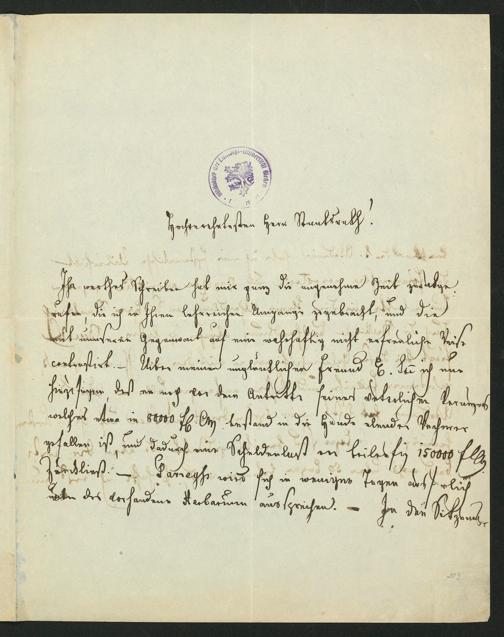 Hochverehrtester Herr Staatsrath!
Ihr werthes Schreiben hat mir ganz die angenehme Zeit zurückge-
rufen, die ich in Ihrem lehrreichen Umgange zugebracht, und die
mit unserer Gegenwart auf eine wahrhaftig nicht erfreuliche Weise
contrastirt. – Über meinen unglücklichen Freund E. kann ich nur
hinzufügen, daß er noch vor dem Antritte seines väterlichen Vermögens
welches etwa in 80000 bestand in die Hände elender Wucherer
gefallen ist, und dadurch eine Schuldenlast von beiläufig 150000 f
. – wird sich in wenigen Tagen ausführlich
über das vorhandene Herbarium aussprechen. – In den Sitzungs-